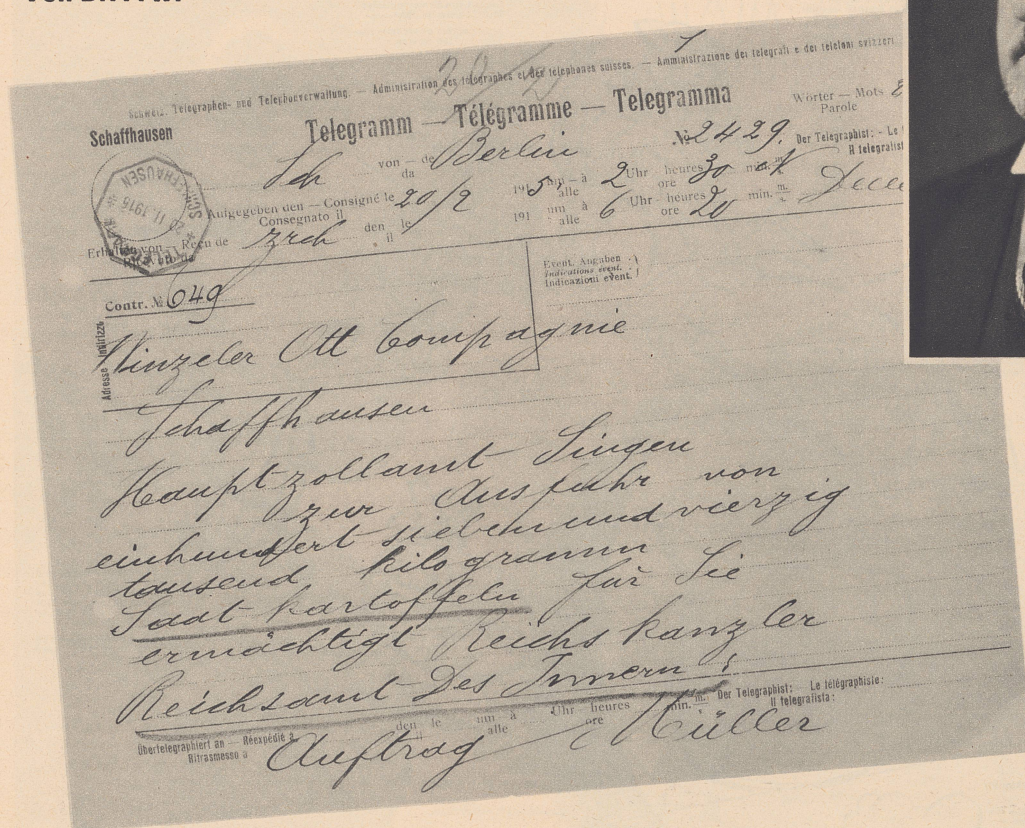 Schweiz. Telegraphen- und Telephonverwaltung. — Administration des télégraphes et des téléphones suisses. — Amministrazione dei telegrafi e dei telefoni svizzeri.
Schaffhausen
Telegramm — Télégramme — Telegramma
Wörter — Mots
Parole
Sch von — de da Berlin № 2429. Der Telegraphist: - Le
Il telegrafist
Aufgegeben den — Consigné le 20/2 1915 um — à 2 Uhr heures 30 min. m.
Consegnato il alle ore
Erhalten von — Reçu de zrch den le 191 um à 6 Uhr - heures 20 min. m.
Ricevuto da il alle ore
SCHAFFHAUSEN
TELEGRAPH
Contr. № 649
Event. Angaben
Indications évent.
Indicazioni event.
Adresse - Indirizzo
Winzeler Ott Compagnie
Schaffhausen
Hauptzollamt Singen
zur Ausfuhr von
einhundert siebenundvierzig
tausend kilogramm
Saat kartoffeln für Sie
ermächtigt Reichskanzler
Reichsamt Des Innern !
Übertelegraphiert an — Réexpédié à den le um à Uhr heures min. m. Der Telegraphist: Le télégraphiste:
Ritrasmesso a alle ore Il telegrafista:
Auftrag Müller